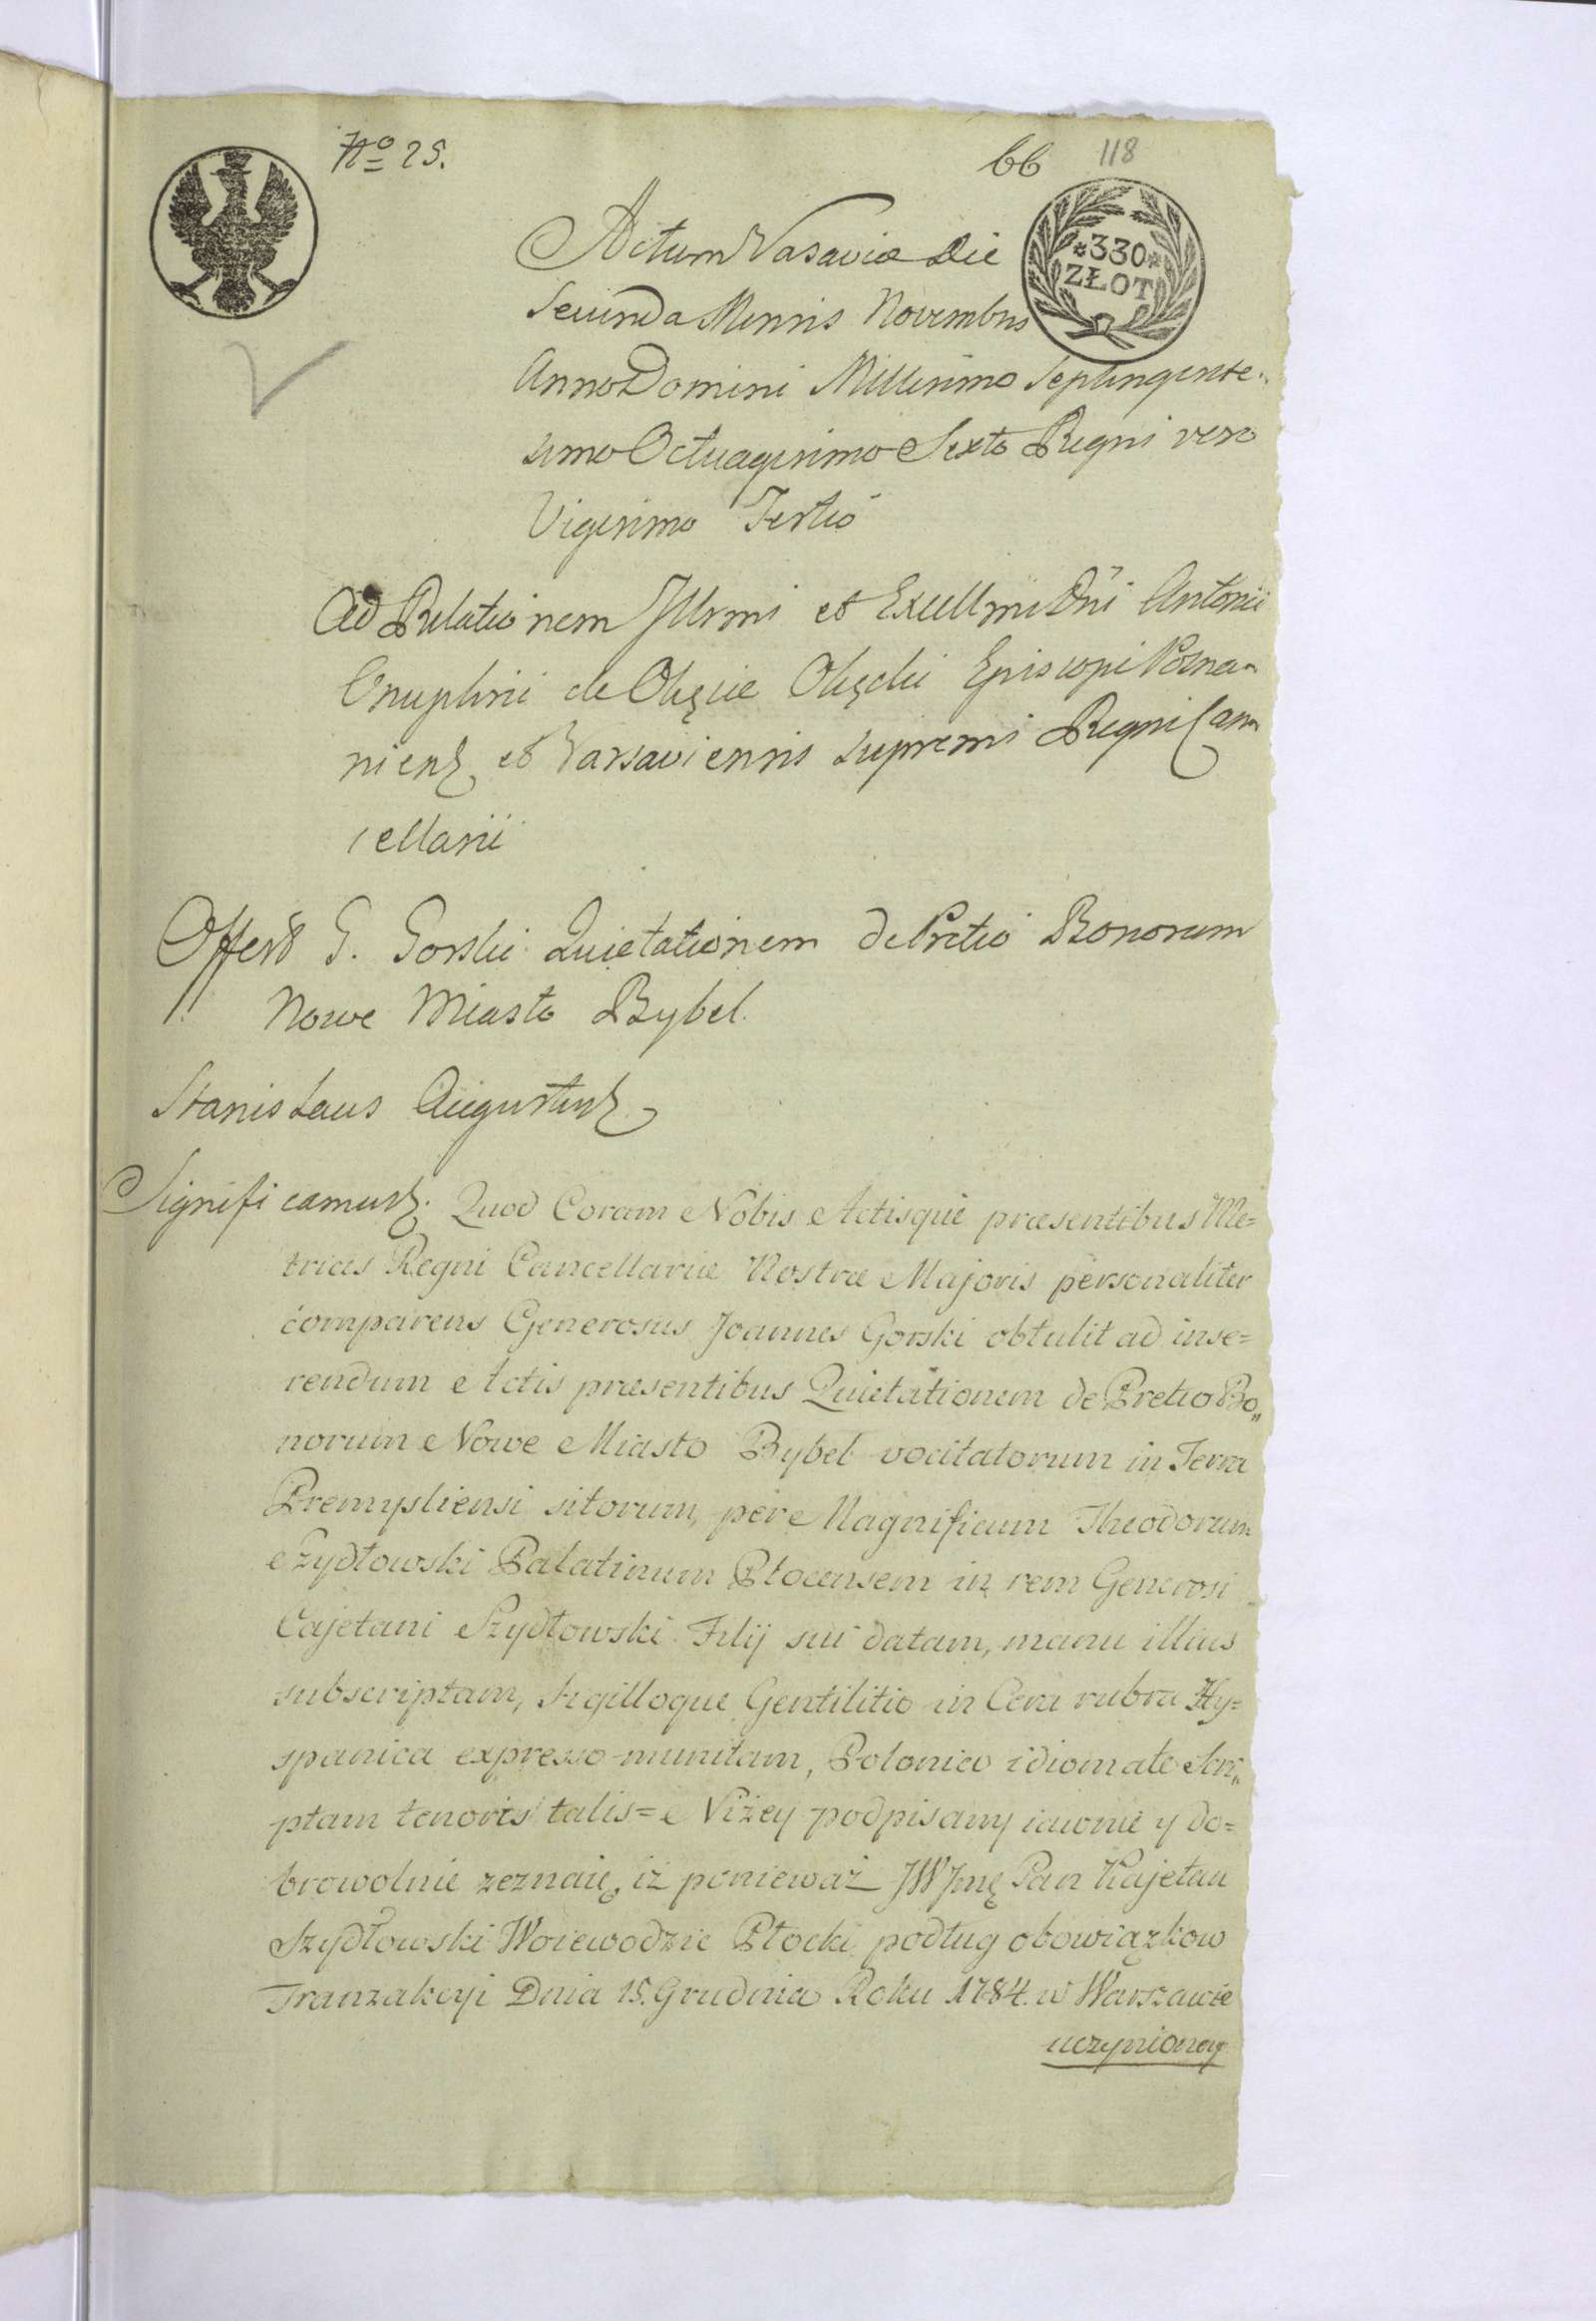 No 25.
66 118
*330*
ZŁOT
Actum Vasaviæ Die
Secunda Mensis Novembris
Anno Domini Millesimo Septingente-
simo Octuagesimo Sexto Regni vero
Vigesimo Tertio
Ad Relationem Illrmi et Excellmi Dni Antonii
Onuphrii de Okęcie Okęcki Episcopi Posna-
niens et Varsaviensis Supremi Regni Can-
cellarii
Offert G. Gorski Quietationem de Pretio Bonorum
Nowe Miasto Bybel.
Stanislaus Augustus
Significamus. Quod Coram Nobis Actisque præsentibus Me=
trices Regni Cancellariæ Nostræ Majoris personaliter
comparens Generosus Joannes Gorski obtulit ad inse=
rendum Actis præsentibus Quietationem de Pretio Bo„
norum Nowe Miasto Bybel vocitatorum in Terra
Premysliensi sitorum, per Magnificum Theodorum
Szydłowski Palatinum Plocensem in rem Generosi
Cajetani Szydłowski Filij sui datam, manu illius
subscriptam, Sigilloque Gentilitio in Cera rubra Hy=
spanica expresso munitam, Polonico idiomate Scri„
ptam tenoris talis= Niżey podpisany iawnie y do=
browolnie zeznaię, iż ponieważ JWJmę Pan Kajetan
Szydłowski Woiewodzic Płocki podług obowiązkow
Tranzakcyi Dnia 15. Grudnia Roku 1784. w Warszawie
uczynioney